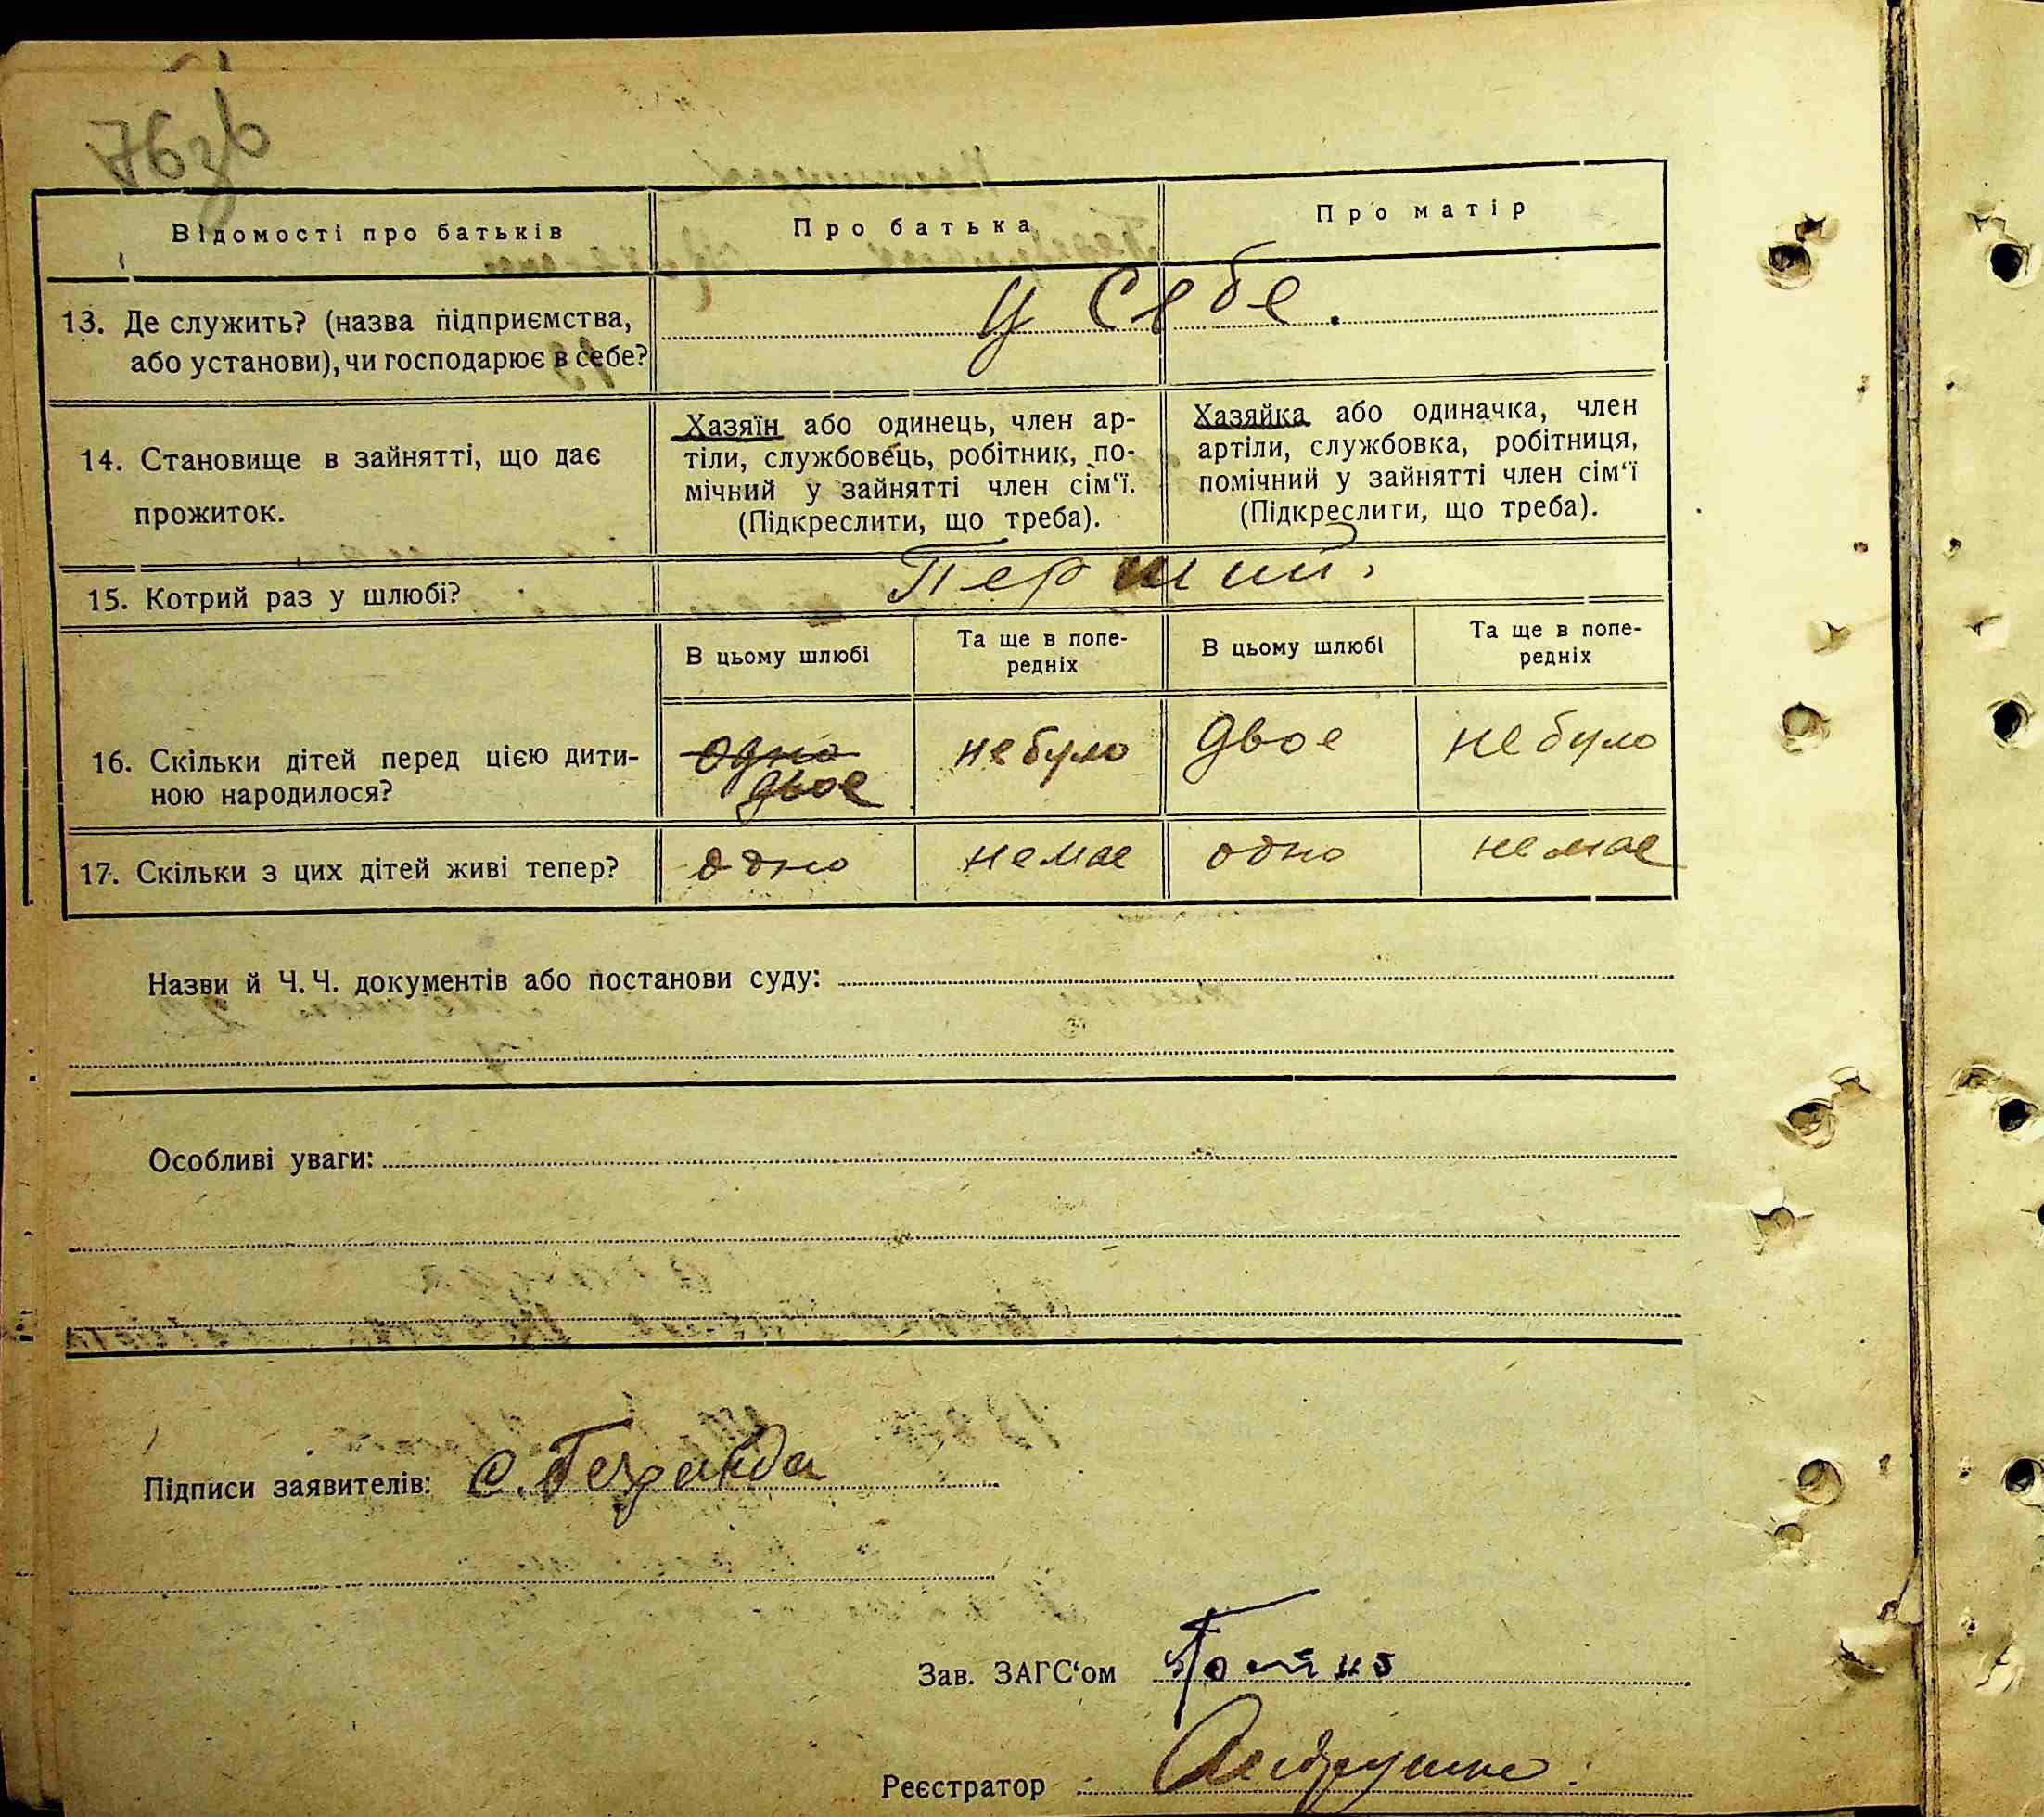 76зв
Відомості про батьків
Про батька
Про матір
13. Де служить? (назва підприємства,
або установи), чи господарює в себе?
У себе.
14. Становище в зайнятті, що дає
прожиток.
Хазяїн або одинець, член ар-
тіли, службовець, робітник, по-
мічний у зайнятті член сім‘ї.
(Підкреслити, що треба).
Хазяйка або одиначка, член
артіли, службовка, робітниця,
помічний у зайнятті член сім‘ї
(Підкреслити, що треба).
15. Котрий раз у шлюбі?
Перший.
В цьому шлюбі
Та ще в попе-
редніх
В цьому шлюбі
Та ще в попе-
редніх
16. Скільки дітей перед цією дити-
ною народилося?
одно
двое
не було
двое
не було
17. Скільки з цих дітей живі тепер?
одно
немає
одно
немає
Назви й Ч. Ч. документів або постанови суду:
Особливі уваги:
Підписи заявителів: С.
Зав. ЗАГС‘ом
Реєстратор